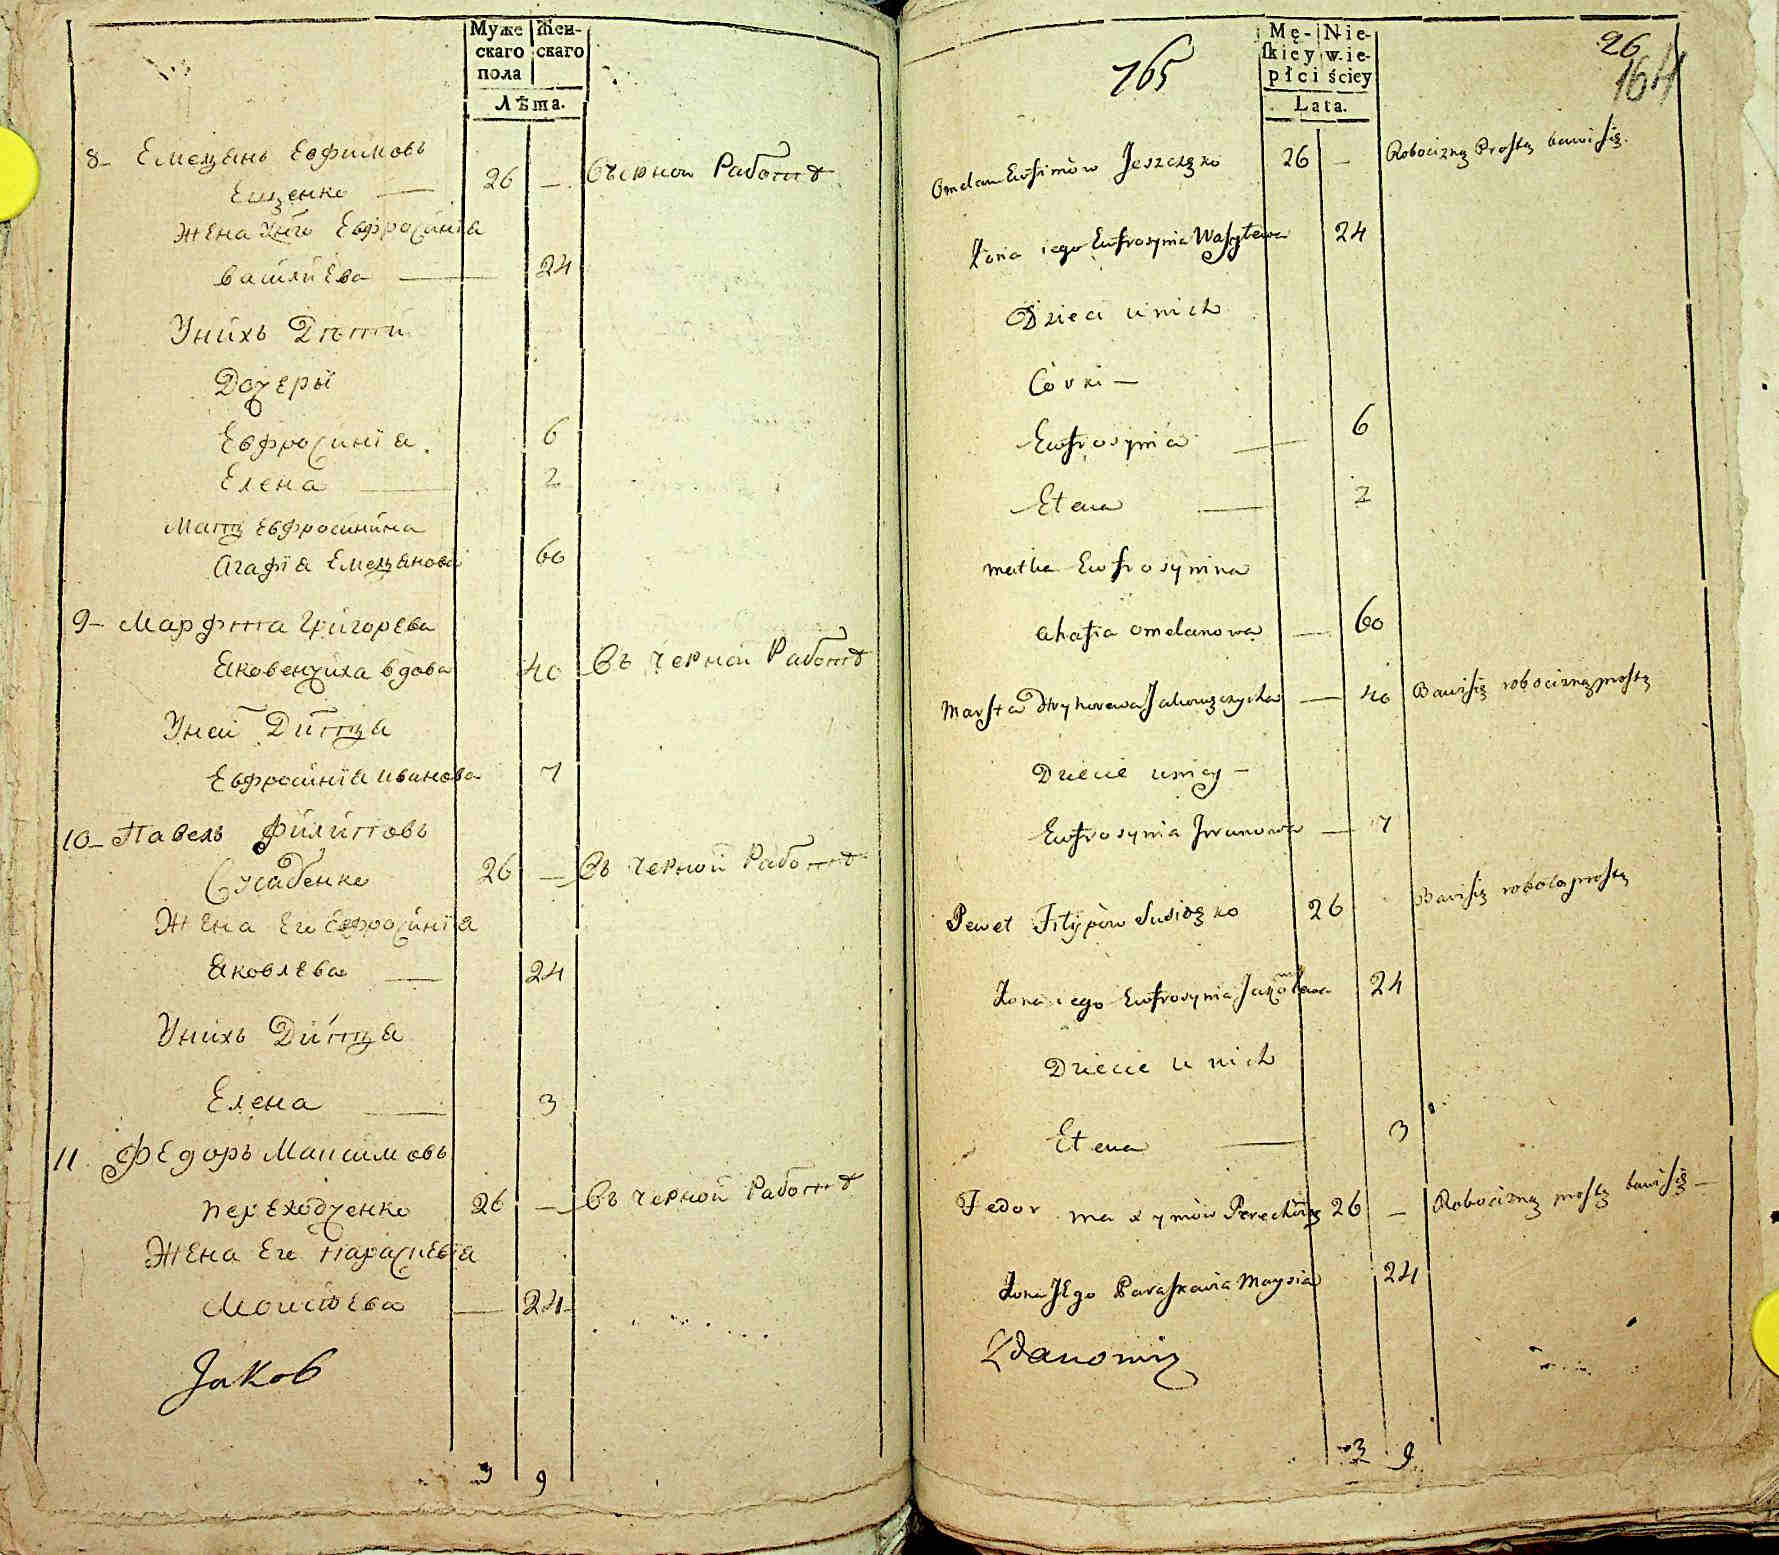 Муже Жен-
скаго скаго
пола
Лѣта.
8 Емелянъ Евфимовъ
Ещенко — 26 — Въ черной Работѣ
Жена Его Евфросинїа
василиева — 24
Унихъ Дѣти
Дочери
Евфросинїа 6
Елена — 2
Мать Евфросинина
Агафїа Емелянова 60
9 Марфита Григорева
Яковенчиха вдова 40 Въ черной Работѣ
Уней Дитя
Евфросинїа иванова 7
10 Павелъ Филиповъ
Сусабенко 26 — Въ черной Работѣ
Жена Его Евфросинїа
Яковлева — 24
Унихъ Дитя
Елена — 3
11 Федоръ Максимовъ
переходченко 26 — Въ черной Работѣ
Жена Его параскевїа
Моисеева — 24
Jakob
3 9
Mę- Nie-
ſkiey wie-
płci ściey
Lata.
165
26
164
Omelan Eufimów Jeszczęko 26 — Robocizną Prostą bawi się.
Żona iego Eufrosynia Wasylewa 24
Dzieci u nich
Córki —
Eufrosynia — 6
Elena — 2
matka Eufrosynina
ahafia omelanowa — 60
Marfta Hryhorewa Jakowęczycha — 40 Bawi się robocizną prostą
Dziecie u niey —
Eufrosynia Jwanowa — 7
Pewel Filypów Susidęko 26 Bawi się robotą prostą
Zona iego Eufrosynia Jakowlewa 24
Dziecie u nich
Elena — 3
Fedor maxymów Perechodę 26 — Robocizną prostą bawi się —
Zona Jego Paraskewia Maysia 24
Zdanowicz
3 9